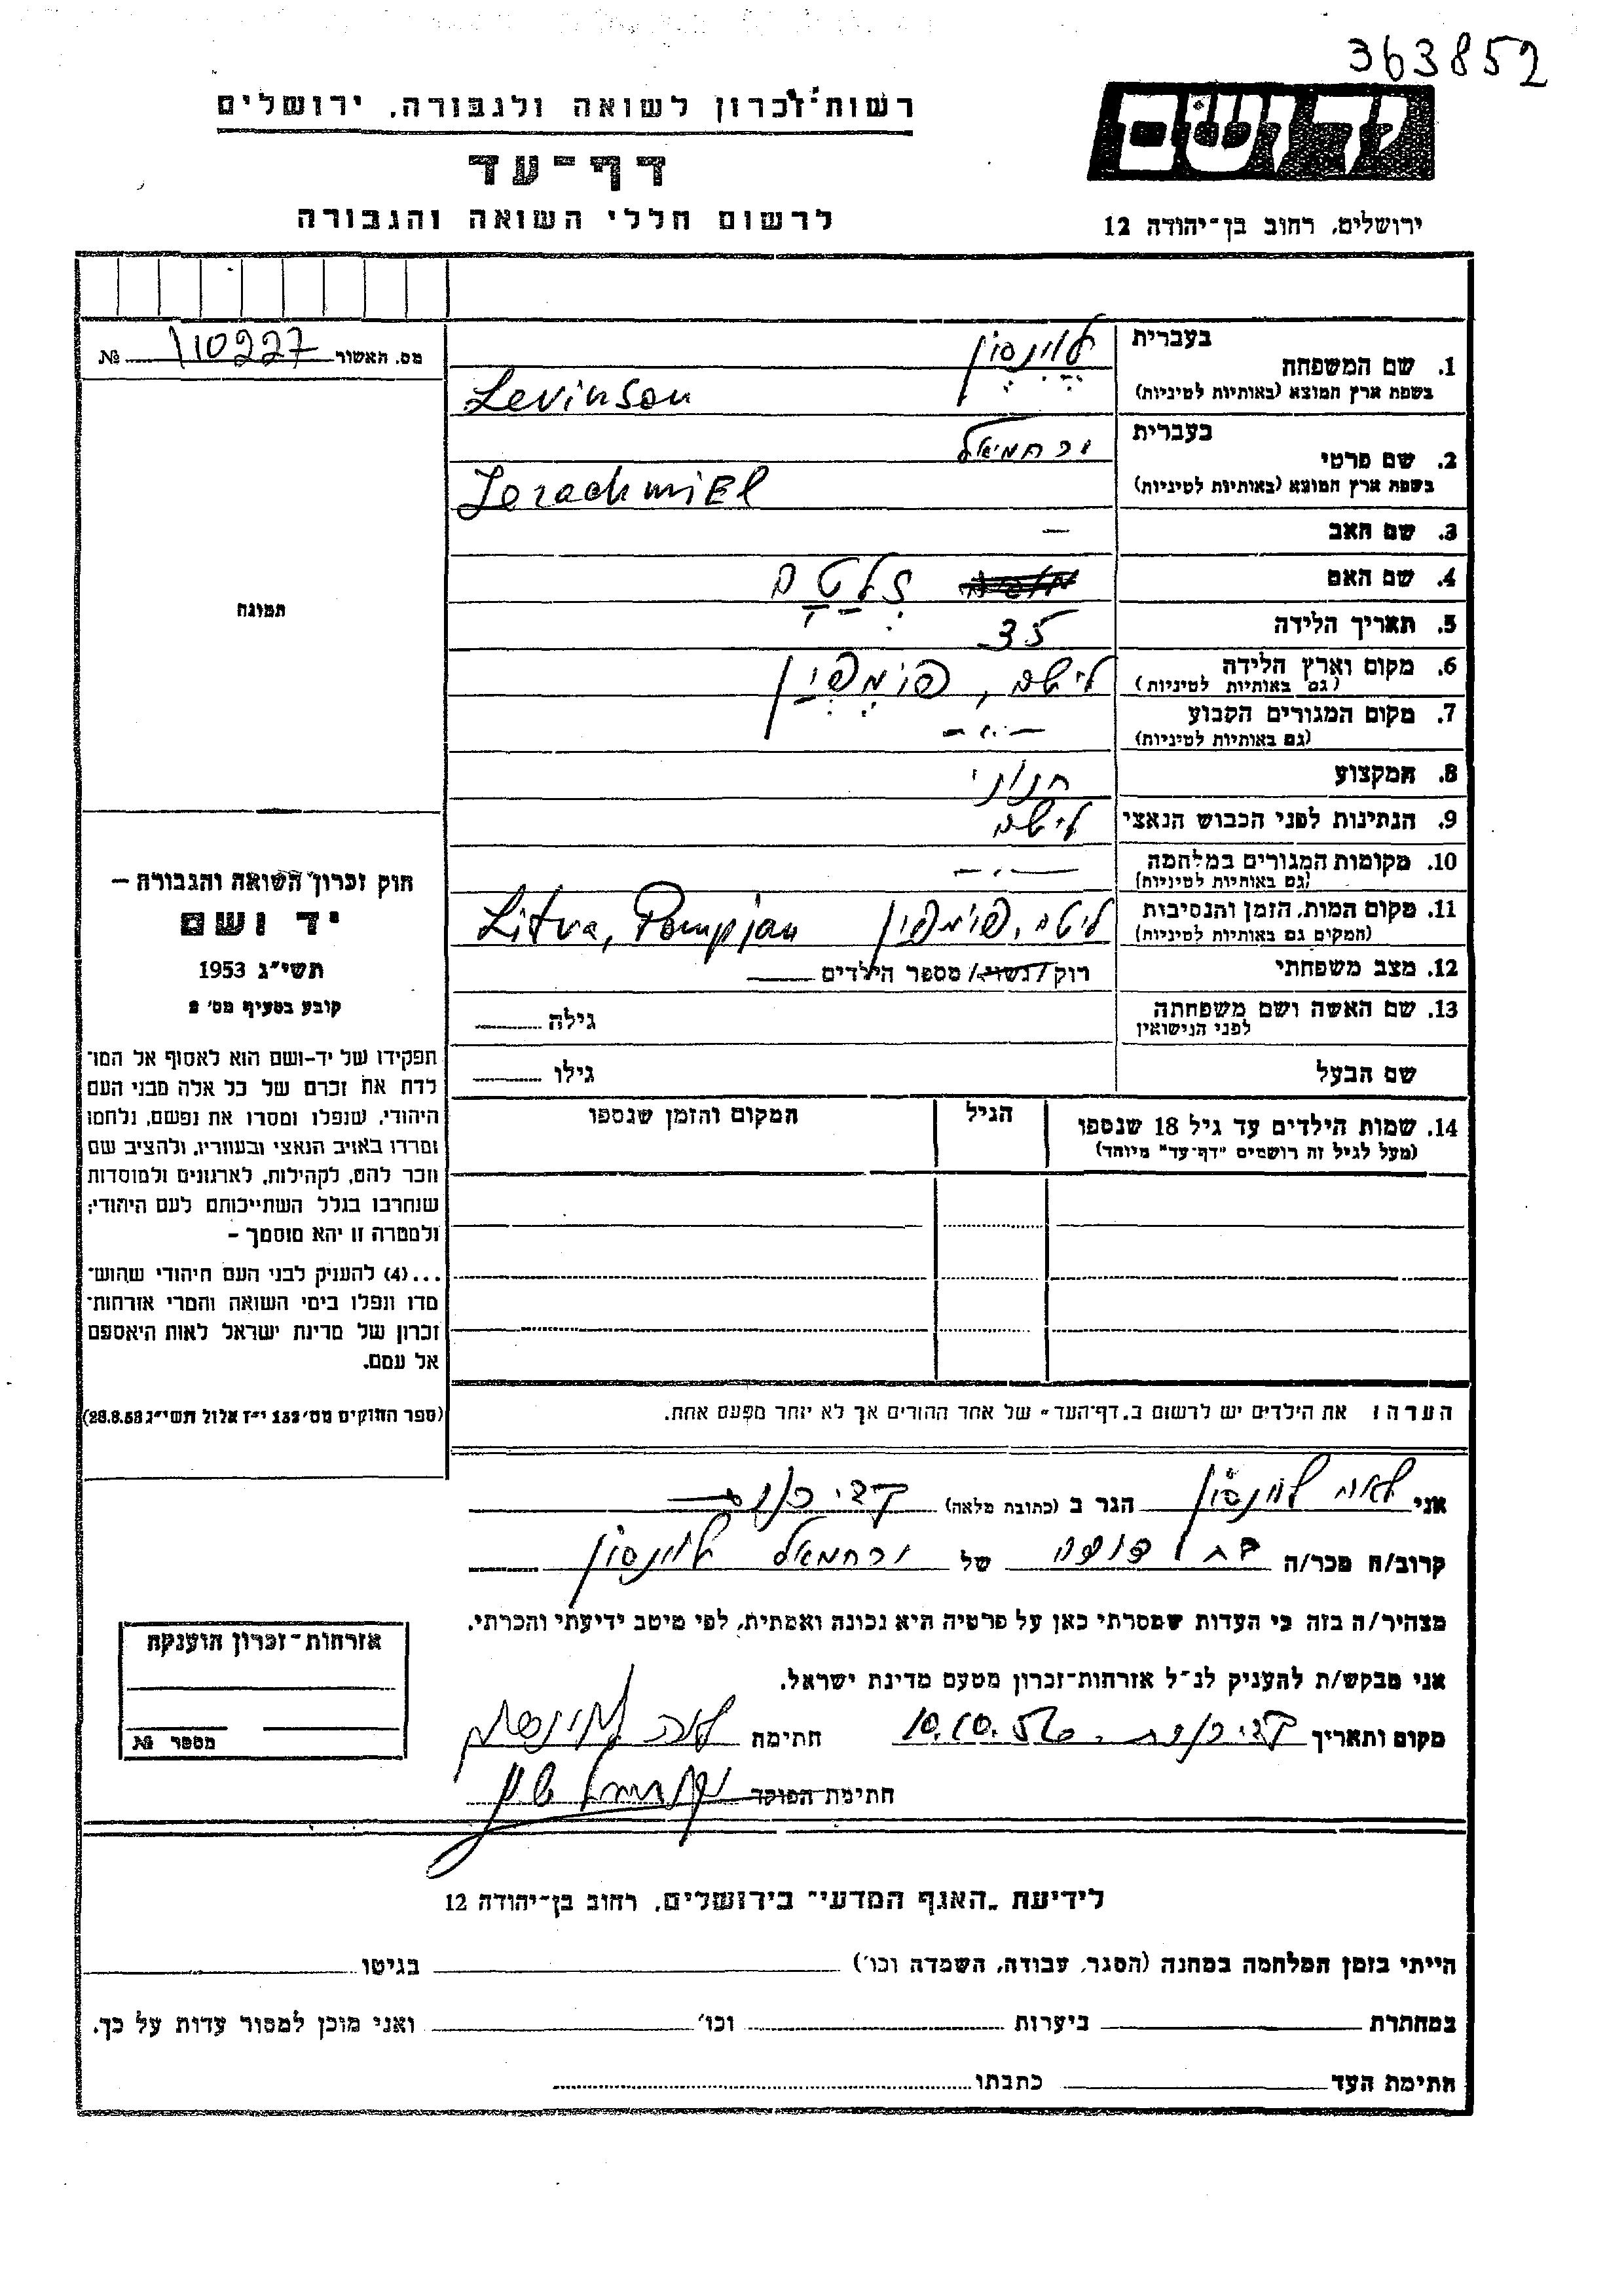 363852
רשות־זכרון לשואה ולגבורה, ירושלים
ידושם
דף־עד
לרשום חללי השואה והגבורה
ירושלים, רחוב בן־יהודה 12
מס. תאשור 110227 №
בעברית לוינסון
1. שם המשפחה
בשפת ארץ המוצא (באותיות לטיניות) Levinson
בעברית ירחמיאל
2. שם פרטי
בשפת ארץ המוצא (באותיות לטיניות) JerachmiEl
3. שם האב –
4. שם האם זלטה
5. תאריך הלידה 35
6. מקום וארץ הלידה ליטא, פומפין
(גם באותיות לטיניות)
7. מקום המגורים הקבוע
(גם באותיות לטיניות)
8. המקצוע חנוני
9. הנתינות לפני הכבוש הנאצי ליטא
10. מקומות המגורים במלחמה
(גם באותיות לטיניות)
11. מקום המות, הזמן והנסיבות ליטא, פומפין Litva, Pompjan
(המקום גם באותיות לטיניות)
12. מצב משפחתי רוק/נשוי/ מספר הילדים
13. שם האשה ושם משפחתה גילה
לפני הנישואין
שם הבעל גילו
14. שמות הילדים עד גיל 18 שנספו הגיל המקום והזמן שנספו
(מעל לגיל זה רושמים "דף־עד" מיוחד)
תמונה
חוק זכרון השואה והגבורה –
יד ושם
תשי"ג 1953
קובע בסעיף מס' 2
תפקידו של יד-ושם הוא לאסוף אל המו־
לדת את זכרם של כל אלה מבני העם
היהודי, שנפלו ומסרו את נפשם, נלחמו
ומרדו באויב הנאצי ובעוזריו, ולהציב שם
וזכר להם, לקהילות, לארגונים ולמוסדות
שנחרבו בגלל השתייכותם לעם היהודי;
ולמטרה זו יהא מוסמך –
...(4) להעניק לבני העם היהודי שהוש־
מדו ונפלו בימי השואה והמרי אזרחות־
זכרון של מדינת ישראל לאות היאספם
אל עמם.
(ספר החוקים מס' 132 י"ז אלול תשי"ג 28.8.53)
הערה: את הילדים יש לרשום ב„דף־העד" של אחד ההורים אך לא יותר מפעם אחת.
אני לאה לוינסון הגר ב (כתובת מלאה)
קרוב/ה מכר/ה של ירחמיאל לוינסון
מצהיר/ה בזה כי העדות שמסרתי כאן על פרטיה היא נכונה ואמתית, לפי מיטב ידיעתי והכרתי.
אני מבקש/ת להעניק לנ"ל אזרחות־זכרון מטעם מדינת ישראל.
מקום ותאריך 10.10.56 חתימה לאה לוינסון
חתימת הפוקד
אזרחות־זכרון הוענקה
מספר №
לידיעת „האגף המדעי" בירושלים, רחוב בן־יהודה 12
הייתי בזמן המלחמה במחנה (הסגר, עבודה, השמדה וכו') בגיטו
במחתרת ביערות וכו' ואני מוכן למסור עדות על כך.
חתימת העד כתבתו